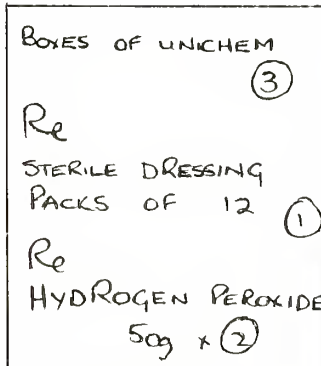 BOXES OF UNICHEM
3
Re
STERILE DRESSING
PACKS OF 12 1
Re
HYDROGEN PEROXIDE
50g x 2